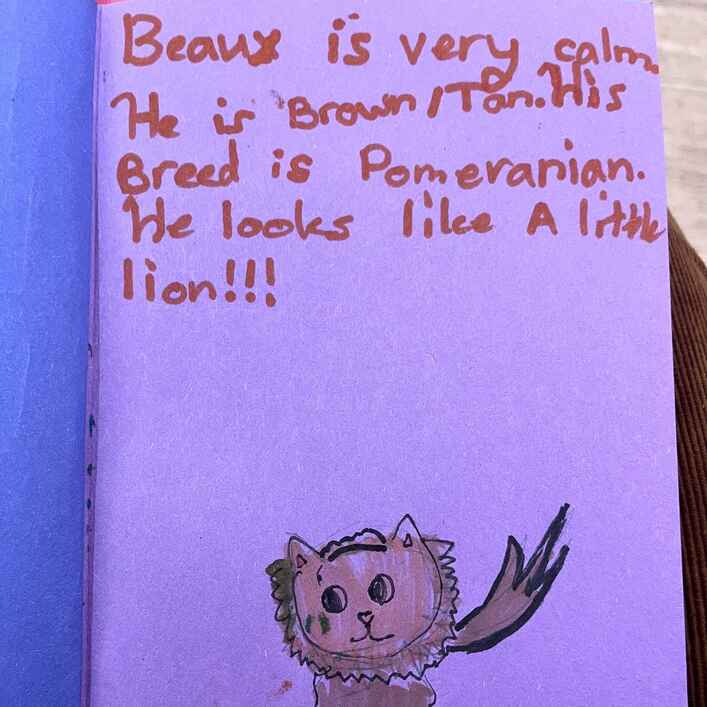 Beaux is very calm.
He is Brown/Tan. His
Breed is Pomeranian.
He looks like A little
lion!!!